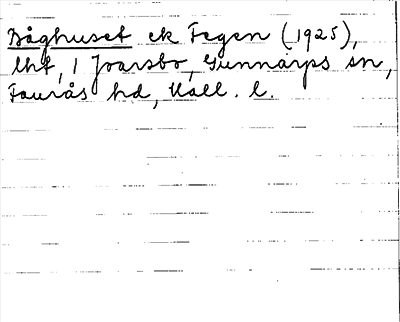 Båghuset ek Fegen (1925),
lht, 1 Joarsbo, Gunnarps sn,
Faurås hd, Hall. l.